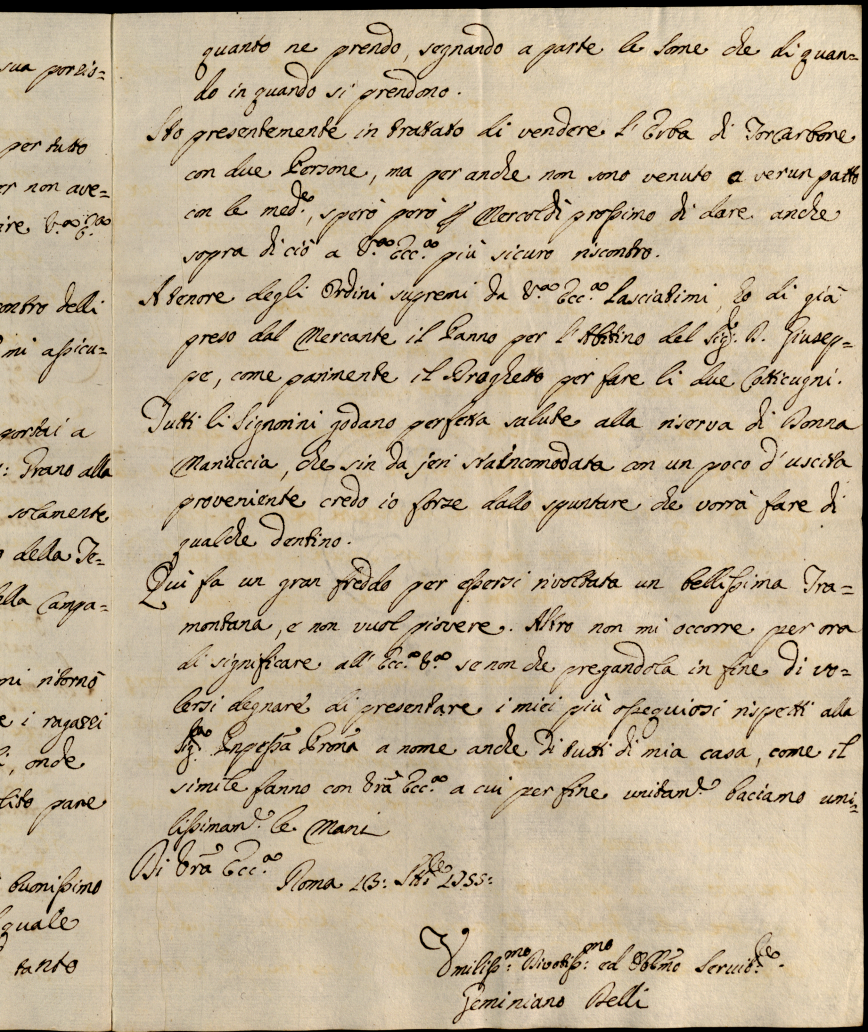 sua porzio=
per tutto
er non ave=
ire V.ra Ecc.a
ontro delli
mi assicu=
portai a
: Grano alla
solamente
o della Te=
lla Campa=
mi ritornò
e i ragazzi
i, onde
lito pare
buonissimo
quale
tanto
quanto ne prendo, segnando a parte le some che di quan=
do in quando si prendono.
Sto presentemente in trattato di vendere l'Erba di Torcarbone
con due Persone, ma per anche non sono venuto a verun patto
con le med.e, sperò però p Mercoldì prossimo di dare anche
sopra di ciò a V.ra Ecc.a più sicuro riscontro.
A tenore degli Ordini supremi da V.ra Ecc.a lasciatimi, ho di già
preso dal Mercante il Panno per l'Abitino del Sig.r D. Giusep=
pe, come parimente il Droghetto per fare li due Cotticugni.
Tutti li Signorini godano perfetta salute alla riserva di Donna
Mariuccia, che sin da jeri stà incomodata con un poco d'uscita
proveniente credo io forze dallo spuntare che vorrà fare di
qualche dentino.
Quì fa un gran freddo per essersi rivoltata un bellissima Tra=
montana, e non vuol piovere. Altro non mi occorre per ora
di significare all' Ecc.a V.ra se non che pregandola in fine di vo=
lersi degnare di presentare i miei più ossequiosi rispetti alla
Sig.ra Pnpessa Prona a nome anche di tutti di mia casa, come il
simile fanno con Vra Ecc.a a cui per fine unitam.te baciamo umi=
lissimam.te le Mani
Di Vra Ecc.a
Roma 13: 1755:
Umiliss.mo Divotiss.mo ed Obbmo Servit.re
Geminiano Belli